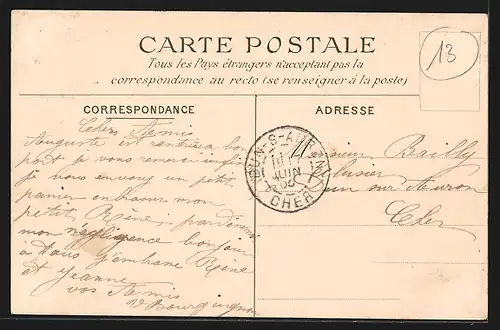 CARTE POSTALE
Tous les Pays étrangers n'acceptant pas la
correspondance au recto (se renseigner à la poste)
13
CORRESPONDANCE
ADRESSE
Chers Amis
Auguste est rentré a bon
port je vous remercie
je vous envoy un petit
panier en bravo mon
petit René, par
mon négligence bonjour
à tous j'embrasse René
et Jeanne
vos Amis
V Bourguignon
DUN-S-AURON
JUIN
CHER
Bailly
Dun sur Auron
Cher